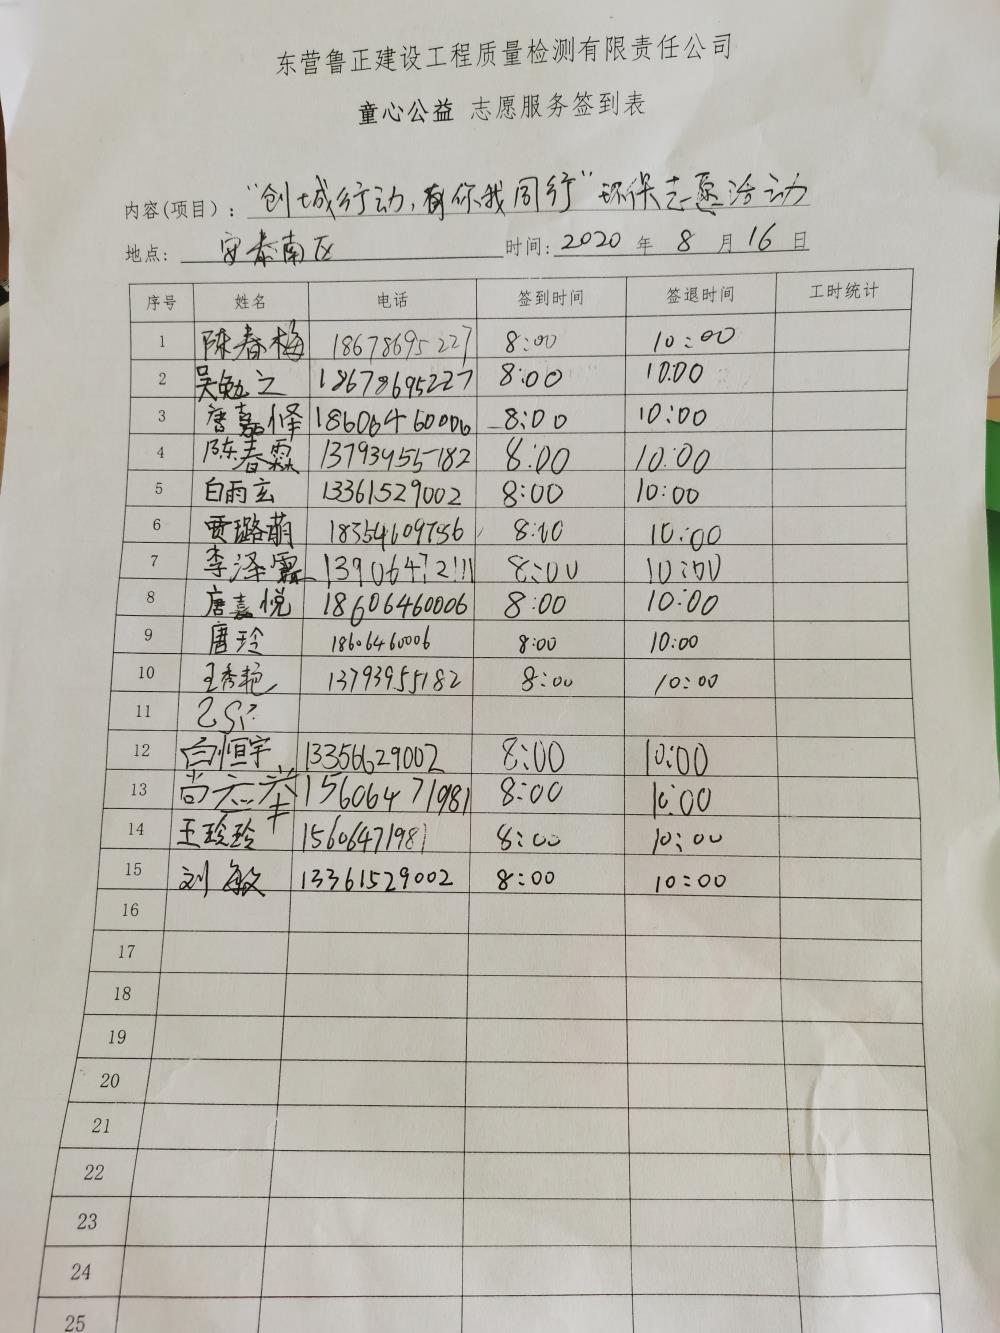 东营鲁正建设工程质量检测有限责任公司
童心公益 志愿服务签到表
内容(项目)："创城行动,有你我同行"环保志愿活动
地点: 安泰南区 时间: 2020 年 8 月 16 日
序号 姓名 电话 签到时间 签退时间 工时统计
1 陈春梅 18678695227 8:00 10:00
2 吴勉之 18678695227 8:00 10:00
3 唐嘉怿 18606460006 8:00 10:00
4 陈春霖 13793955182 8:00 10:00
5 白雨玄 13361529002 8:00 10:00
6 贾璐萌 18354609756 8:00 10:00
7 李泽霖 13906472111 8:00 10:00
8 唐嘉悦 18606460006 8:00 10:00
9 唐玲 18606460006 8:00 10:00
10 王秀艳 13793955182 8:00 10:00
11
12 白恒宇 13356629002 8:00 10:00
13 尚 15606471981 8:00 10:00
14 王珍珍 15606471981 8:00 10:00
15 刘敏 13361529002 8:00 10:00
16
17
18
19
20
21
22
23
24
25